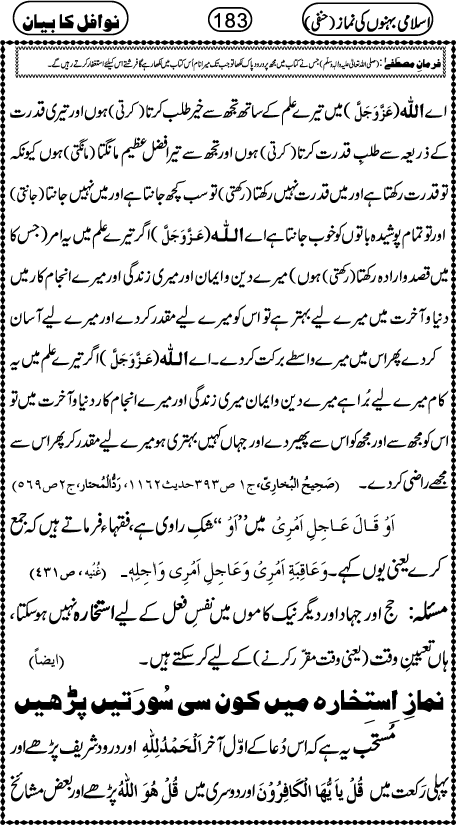 اسلامی بہنوں کی نماز (حنفی) 183 نوافل کا بیان
فرمانِ مصطفےٰ: (صلی اللہ تعالیٰ علیہ والہ وسلم) جس نے کتاب میں مجھ پر درود پاک لکھا تو جب تک میرا نام اُس کتاب میں لکھا رہے گا فرشتے اس کیلئے استغفار کرتے رہیں گے۔
اے اللہ (عَزَّوَجَلَّ) میں تیرے علم کے ساتھ تجھ سے خیر طلب کرتا (کرتی) ہوں اور تیری قدرت
کے ذریعہ سے طلبِ قدرت کرتا (کرتی) ہوں اور تجھ سے تیرا فضلِ عظیم مانگتا (مانگتی) ہوں کیونکہ
تو قدرت رکھتا ہے اور میں قدرت نہیں رکھتا (رکھتی) تو سب کچھ جانتا ہے اور میں نہیں جانتا (جانتی)
اور تو تمام پوشیدہ باتوں کو خوب جانتا ہے اے اللہ (عَزَّوَجَلَّ) اگر تیرے علم میں یہ امر (جس کا
میں قصد و ارادہ رکھتا (رکھتی) ہوں) میرے دین و ایمان اور میری زندگی اور میرے انجام کار میں
دنیا و آخرت میں میرے لیے بہتر ہے تو اس کو میرے لیے مقدر کر دے اور میرے لیے آسان
کر دے پھر اس میں میرے واسطے برکت کر دے۔ اے اللہ (عَزَّوَجَلَّ) اگر تیرے علم میں یہ
کام میرے لیے بُرا ہے میرے دین و ایمان میری زندگی اور میرے انجام کار دنیا و آخرت میں تو
اس کو مجھ سے اور مجھ کو اس سے پھیر دے اور جہاں کہیں بہتری ہو میرے لیے مقدر کر پھر اس سے
مجھے راضی کر دے۔ (صَحِیحُ البُخارِی، ج۱ ص۳۹۳ حدیث ۱۱۶۲، رَدُّالْمُحتار، ج۲ ص۵۶۹)
اَوْ قَالَ عَاجِلِ اَمْرِیْ میں ”اَوْ“ شکِ راوی ہے، فقہاء فرماتے ہیں کہ جمع
کرے یعنی یوں کہے۔ وَعَاقِبَۃِ اَمْرِیْ وَعَاجِلِ اَمْرِی وَاٰجِلِہٖ۔ (غُنیہ، ص۴۳۱)
مسئلہ: حج اور جہاد اور دیگر نیک کاموں میں نفسِ فعل کے لیے استخارہ نہیں ہوسکتا،
ہاں تعیینِ وقت (یعنی وقت مقرّر کرنے) کے لیے کر سکتے ہیں۔ (ایضاً)
نمازِ استخارہ میں کون سی سُورَتیں پڑھیں
مُستحب یہ ہے کہ اس دُعا کے اوّل آخر اَلْحَمْدُلِلّٰہِ اور درود شریف پڑھے اور
پہلی رَکعت میں قُلْ یٰاَیُّھَا الْکَافِرُوْنَ اور دوسری میں قُلْ ھُوَ اللہُ پڑھے اور بعض مشائخ